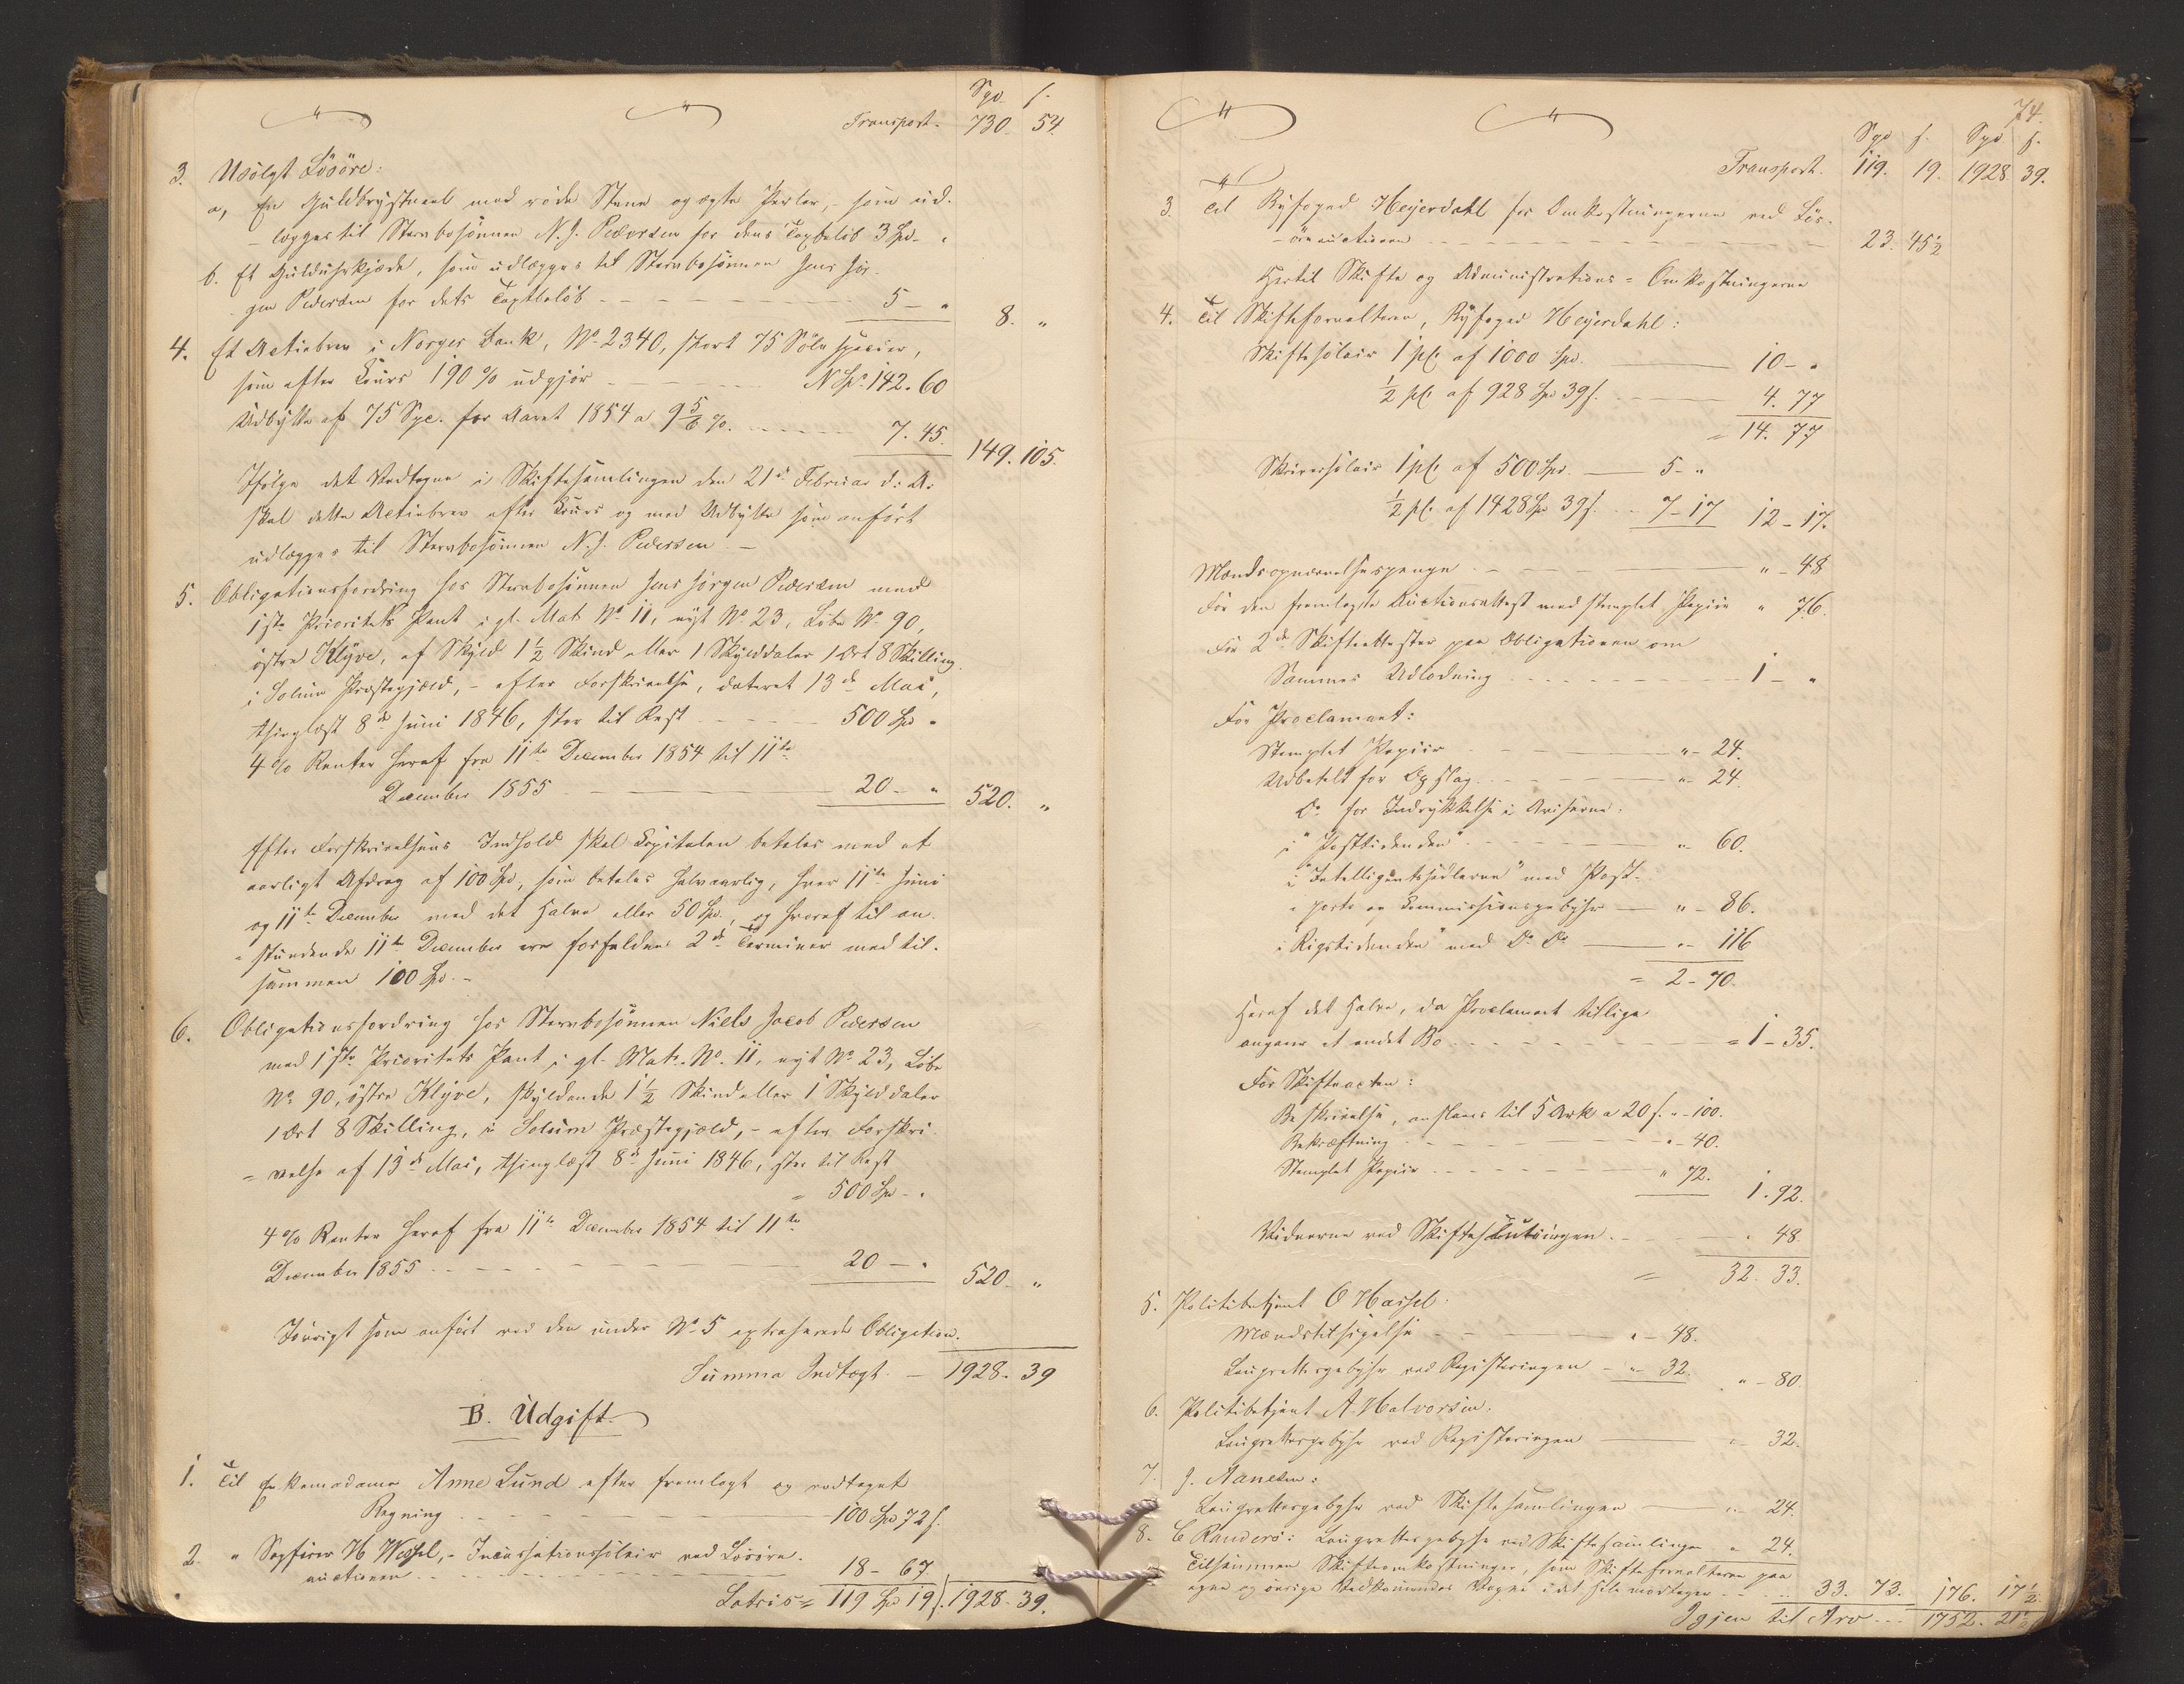 Spd. s.
Transport. 730. 54.
3. Usolgt Løsøre:
a, En Guldbrystnaal med røde Stene og ægte Perler, - som ud-
- lægges til Sterbosønnen N. J. Pedersen for dens Taxtbeløb 3 Spd - "
b. Et Gulduhrkjæde, som udlægges til Sterbosønnen Jens Jør-
gen Pedersen for dets Taxtbeløb - - - 5 - " 8. "
4. Et Actiebrev i Norges Bank, No 2340, stort 75 Sølv Species,
som efter Cours 190 % udgjør - - - N Spd. 142. 60
Udbytte af 75 Spc. for Aaret 1854 a 9 5/6 %. - - - 7. 45. 149. 105.
Ifølge det Vedtagne i Skiftesamlingen den 21de Februar d: A:
skal dette Actiebrev efter Cours og med Udbytte som anført
udlægges til Sterbosønnen N. J. Pedersen -
5. Obligationsfordring hos Sterbosønnen Jens Jørgen Pedersen med
1ste Prioritets Pant i gl. Mat. No 11, nyt No 23, Løbe No 90,
østre Klyve, af Skyld 1 1/2 Skind eller 1 Skylddaler 1 Ort 8 Skilling
i Solum Præstegjæld, - efter Forskrivelse, dateret 13de Mai,
thinglæst 8de Juni 1846, stor til Rest - - - 500 Spd "
4 % Renter heraf fra 11te December 1854 til 11te
December 1855 - - - 20 - " 520. "
Efter Forskrivelsens Indhold skal Capitalen betales med et
aarligt Afdrag af 100 Spd, som betales halvaarlig, hver 11te Juni
og 11te December med det Halve eller 50 Spd., og hvoraf til an-
- stundende 11te December ere forfaldne 2de Terminer med til-
sammen 100 Spd. -
6. Obligationsfordring hos Sterbosønnen Niels Jacob Pedersen
med 1ste Prioritets Pant i gl. Matr. No. 11, nyt No 23, Løbe
No 90, østre Klyve, skyldende 1 1/2 Skind eller 1 Skylddaler
1 Ort 8 Skilling, i Solum Præstegjæld, - efter Forskri-
- velse af 13de Mai, thinglæst 8de Juni 1846, stor til Rest
= 500 Spd - "
4 % Renter heraf fra 11te December 1854 til 11te
December 1855 - - - 20 - " 520 - "
Iøvrigt som anført ved den under No 5 extraherede Obligation.
Summa Indtægt - 1928 - 39
B. Udgift.
1. Til Enkemadame Anne Lund efter fremlagt og vedtaget
Regning - - - 100 Spd 72 s.
2. " Sagfører H Wessel, - Incassationssalair ved Løsøre-
auctionen - - - 18 - 67.
Lateris = 119 Spd 19 s. 1928 - 39.
74.
Spd s. Spd s.
Transport. 119. 19. 1928 39.
3. Til Byfoged Heyerdahl for Omkostningerne ved Løs-
- øreauctionen - - - 23. 45 1/2
Hertil Skifte og Administrations = Omkostningerne
4. Til Skifteforvalteren, Byfoged Heyerdahl:
Skiftesalair 1 pC. af 1000 Spd. - 10 - "
1/2 pC. af 928 Spd 39 s. - - - 4. 77
= 14. 77
Skriversalair 1 pC. af 500 Spd. - 5 - "
1/2 pC. af 1428 Spd 39 s. - - 7 - 17 12 - 17.
Mændsopnævnelsespenge - - - " - 48
For den fremlagte Auctionsattest med stemplet Papiir " 76.
For 2de Skifteattester paa Obligationen om
Sammes Udlodning - - - 1 - "
For Proclamaet:
Stemplet Papiir - - - " - 24.
Udbetalt for Opslag. - - - " - 24.
Do for Indrykkelse i Aviserne:
i "Posttidenden" - - - " 60.
i "Intelligentssedlerne" med Post-
- porto og Commissionsgebyhr - " - 86.
i Rigstidenden" med Do Do - " - 116
= 2 - 70.
Heraf det Halve, da Proclamaet tillige
angaar et andet Bo - - - = 1 - 35.
For Skifteacten:
Beskrivelse, anslaaes til 5 Ark a 20 s. " - 100.
Bekræftning - - - " - 40.
Stemplet Papiir - - - " 72. 1. 92.
Vidnerne ved Skifteslutningen. - - - " 48.
= 32. 33.
5. Politibetjent O Hassel:
Mændstilsigelse - - - " - 48.
Laugrettesgebyhr ved Registeringen - " - 32. " - 80.
6. Politibetjent A. Halvorsen:
Laugrettesgebyhr ved Registeringen - " 32.
7. J. Aanesen:
Laugrettesgebyhr ved Skiftesamlingen - " - 24.
8. C Randers: Laugrettesgebyhr ved Skiftesamlingen " 24.
Tilsammen Skifteomkostninger, som Skifteforvalteren paa
egne og øvrige Vedkommendes Vegne i det hele modtager - 33. 73. 176. 17 1/2.
Igjen til Arv - - - 1752. 21 1/2